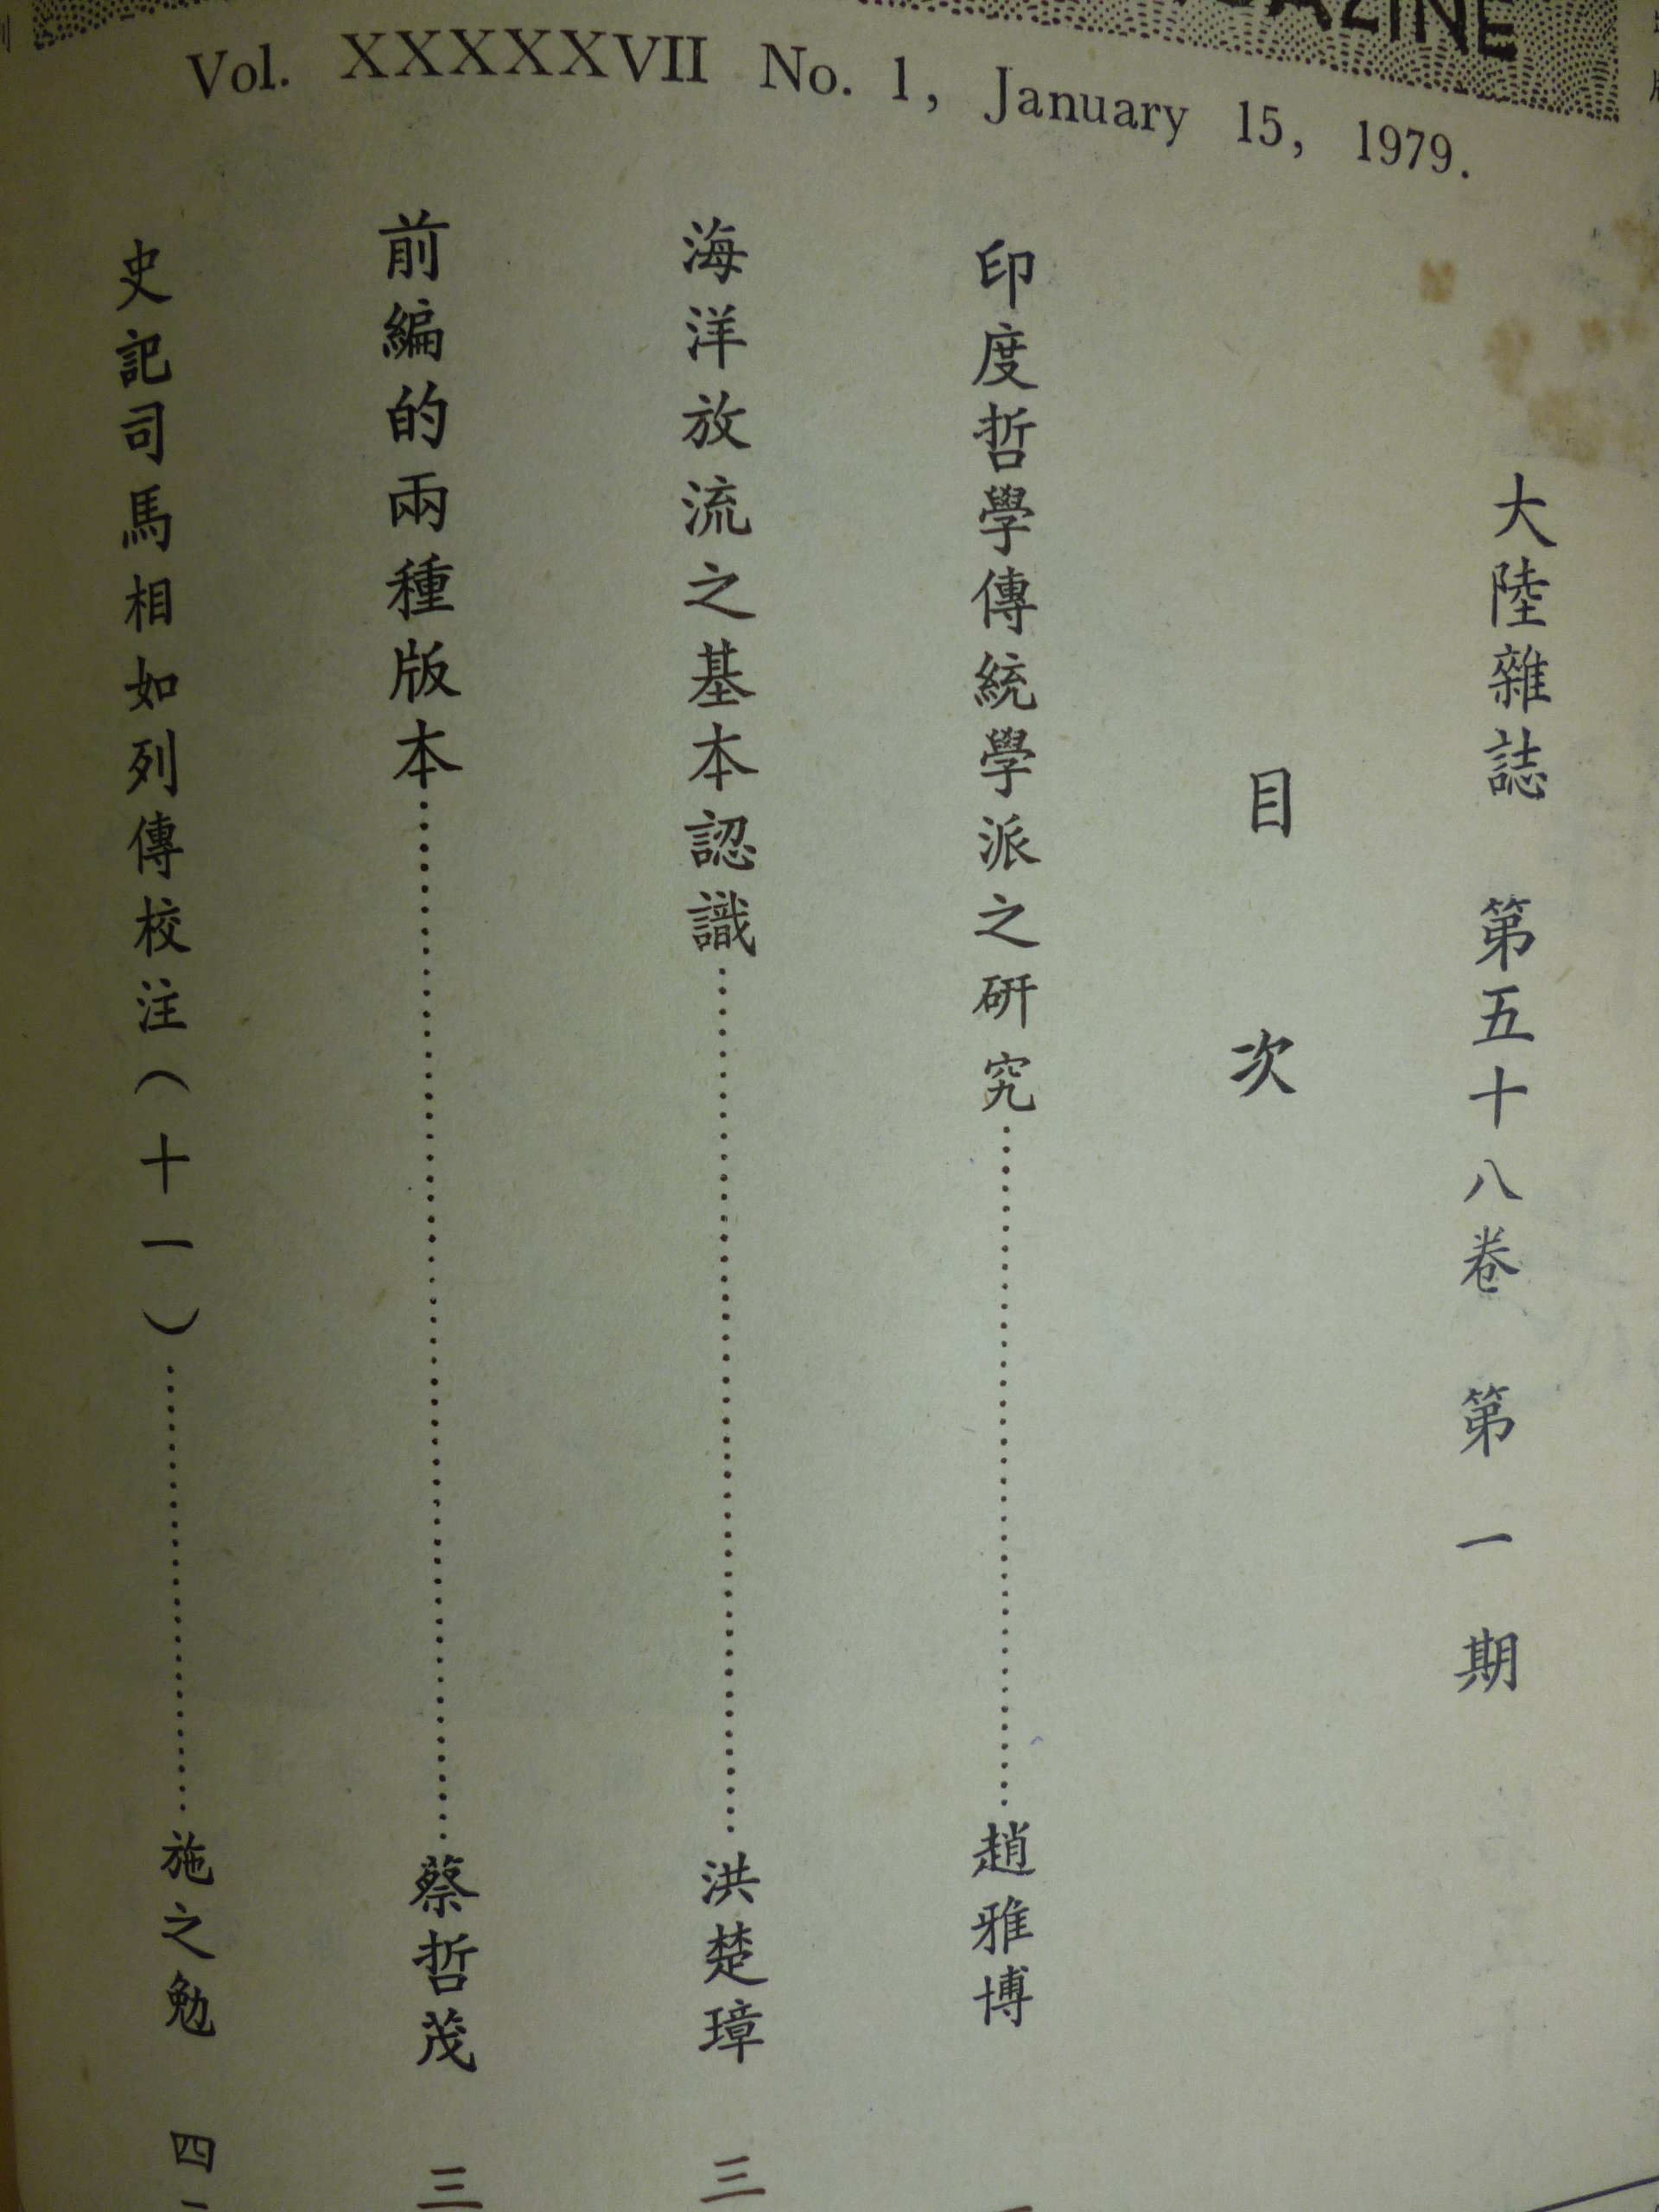 Vol. XXXXXVII No. 1, January 15, 1979.
大陸雜誌 第五十八卷 第一期
目次
印度哲學傳統學派之研究……趙雅博
海洋放流之基本認識……洪楚璋 三
前編的兩種版本……蔡哲茂 三
史記司馬相如列傳校注(十一)……施之勉 四